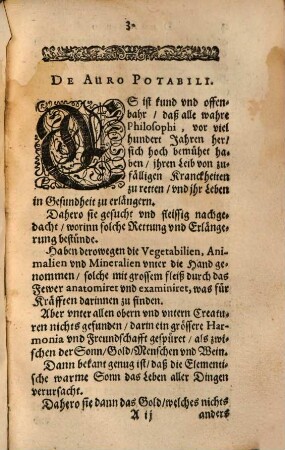 3
DE AURO POTABILI.
ES ist kund vnd offen-
bahr / daß alle wahre
Philosophi, vor viel
hundert Jahren her/
sich hoch bemühet ha-
ben / ihren Leib von zu-
fälligen Kranckheiten
zu retten / vnd ihr Leben
in Gesundheit zu erlängern.
Dahero sie gesucht vnd fleissig nachge-
dacht / worinn solche Rettung vnd Erlänge-
rung bestünde.
Haben derowegen die Vegetabilien, Ani-
malien vnd Mineralien vnter die Hand ge-
nommen / solche mit grossem fleiß durch das
Fewer anatomiret vnd examiniret, was für
Kräfften darinnen zu finden.
Aber vnter allen obern vnd vntern Creatu-
ren nichts gefunden / darin ein grössere Har-
monia vnd Freundschafft gespüret / als zwi-
schen der Sonn/Gold/Menschen vnd Wein.
Dann bekant genug ist/ daß die Elementi-
sche warme Sonn das Leben aller Dingen
verursacht.
Dahero sie dann das Gold/welches nichts
A ij anders